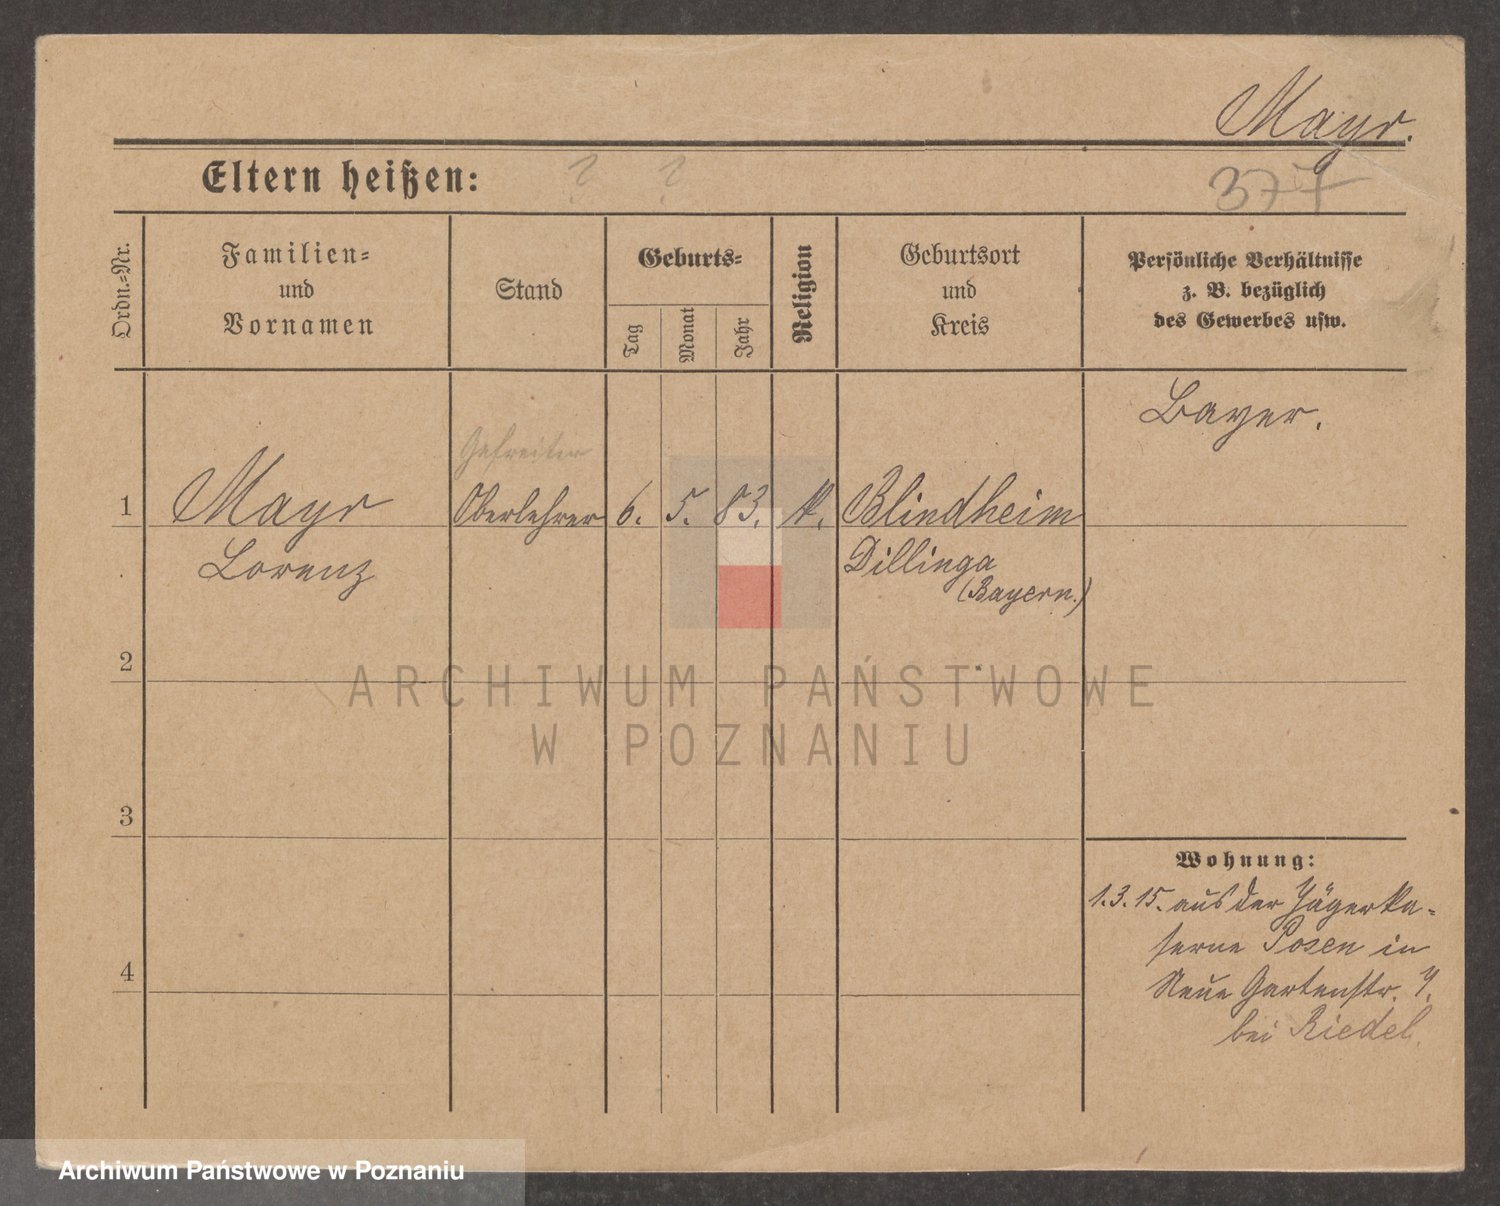 Mayr.
Eltern heißen: ? ?
377
Ordn.-Nr.
Familien-
und
Vornamen
Stand
Geburts-
Tag
Monat
Jahr
Religion
Geburtsort
und
Kreis
Persönliche Verhältnisse
z. B. bezüglich
des Gewerbes usw.
Bayer.
Gefreiter
1 Mayr Oberlehrer 6. 5. 83. k. Blindheim
Lorenz Dillinga
(Bayern.)
2
ARCHIWUM PAŃSTWOWE
W POZNANIU
3
Wohnung:
1.3.15. aus der Jägerka-
serne Posen in
4 Neue Gartenstr. 4.
bei Riedel.
Archiwum Państwowe w Poznaniu